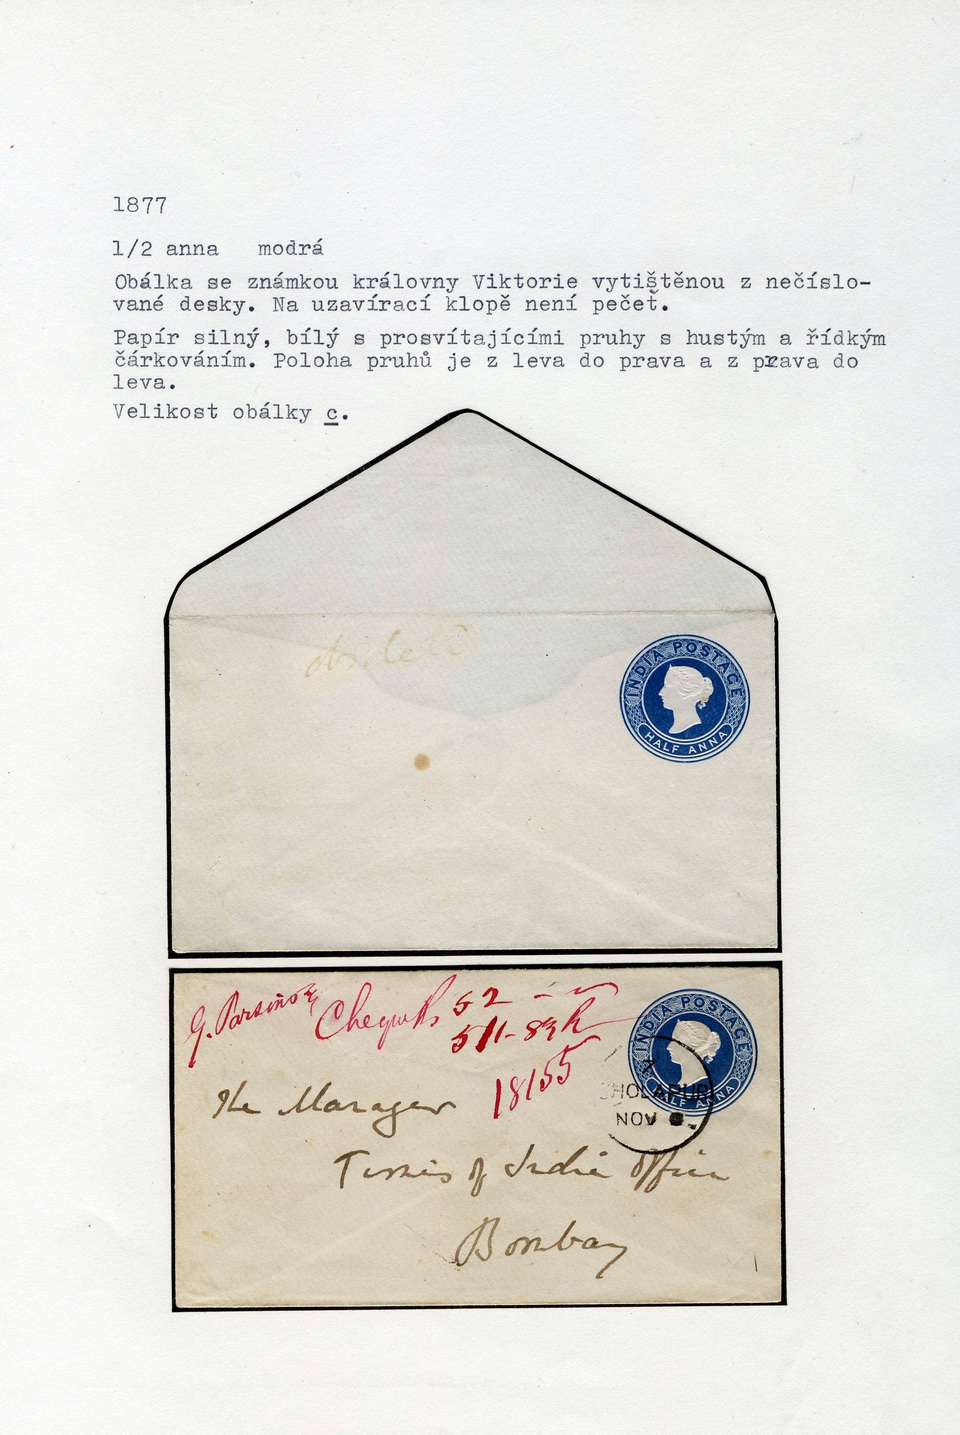 1877
1/2 anna modrá
Obálka se známkou královny Viktorie vytištěnou z nečíslo-
vané desky. Na uzavírací klopě není pečeť.
Papír silný, bílý s prosvítajícími pruhy s hustým a řídkým
čárkováním. Poloha pruhů je z leva do prava a z prava do
leva.
Velikost obálky c.
INDIA POSTAGE
HALF ANNA
52
18155
INDIA POSTAGE
HALF ANNA
HOLAPUR
NOV
The Manager
Times of India Office
Bombay